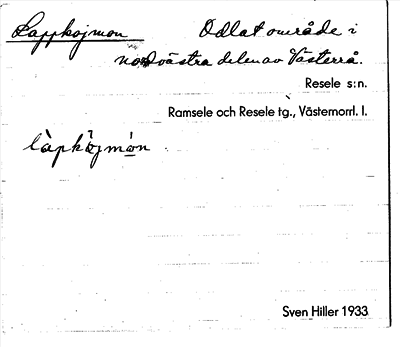 Lappkojmon Odlat område i
nordvästra delen av Västerrå.
Resele s:n.
Ramsele och Resele tg., Västernorrl. l.
làpkö̀jmón
Sven Hiller 1933